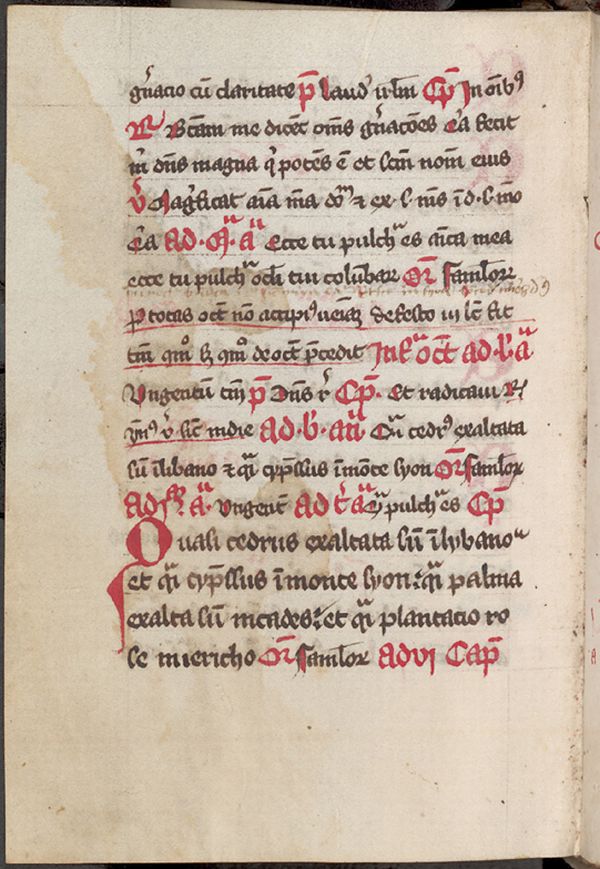 gñacio cū claritate p̄ laud' ir̄lm Cp̄ In oīb9
R̄ Btām me dicēt om̄s gñacōes Q̄a fecit
m̄ dn̄s magna q̄ potēs ē et sc̄m nom̄ eius
v̄ Magficat aīa m̄a do᷑ ⁊ ex · s · m̄s ī d · s · mō
Q̄a ad · M · aᷓ Ecce tu pulchᷓ es aīca mea
ecce tu pulchᷓ oc̄li tui colūbar Oř famlor
P totas oct' nō accipi' de festo iii lc̄ sit
tm̄ qm̄ s; qm̄ de oct' p̄cedit Infᷓ oct' ad · v · aᷓ
Vngentū tm̄ p̄ Dn̄s r̄ Cp̄ · Et radicaui R̄
ym9 v̄ sic' in die ad · b · añ Q̄ cedr9 exaltata
sū ī libano ⁊ q̄i cyp̄ssus ī mōte syon Oř famlor
ad · aᷓ · Vngent' ad t̄ aᷓ Q̄ pulchᷓ es Cp̄
Quasi cedrus exaltata sū ī lybano
et q̄i cyp̄ssus ī monte syon ⁊ q̄i palma
exalta sū in cades ⁊ et q̄i plantacio ro
se in iericho Oř famlor ad vi Cap̄